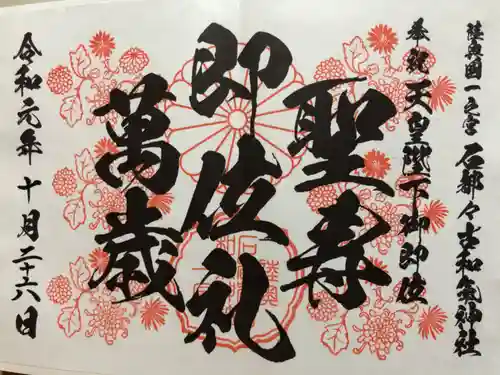 陸奥国一之宮 石都々古和氣神社
奉祝 天皇陛下御即位
聖寿
即位礼
萬歳
令和元年十月二十六日